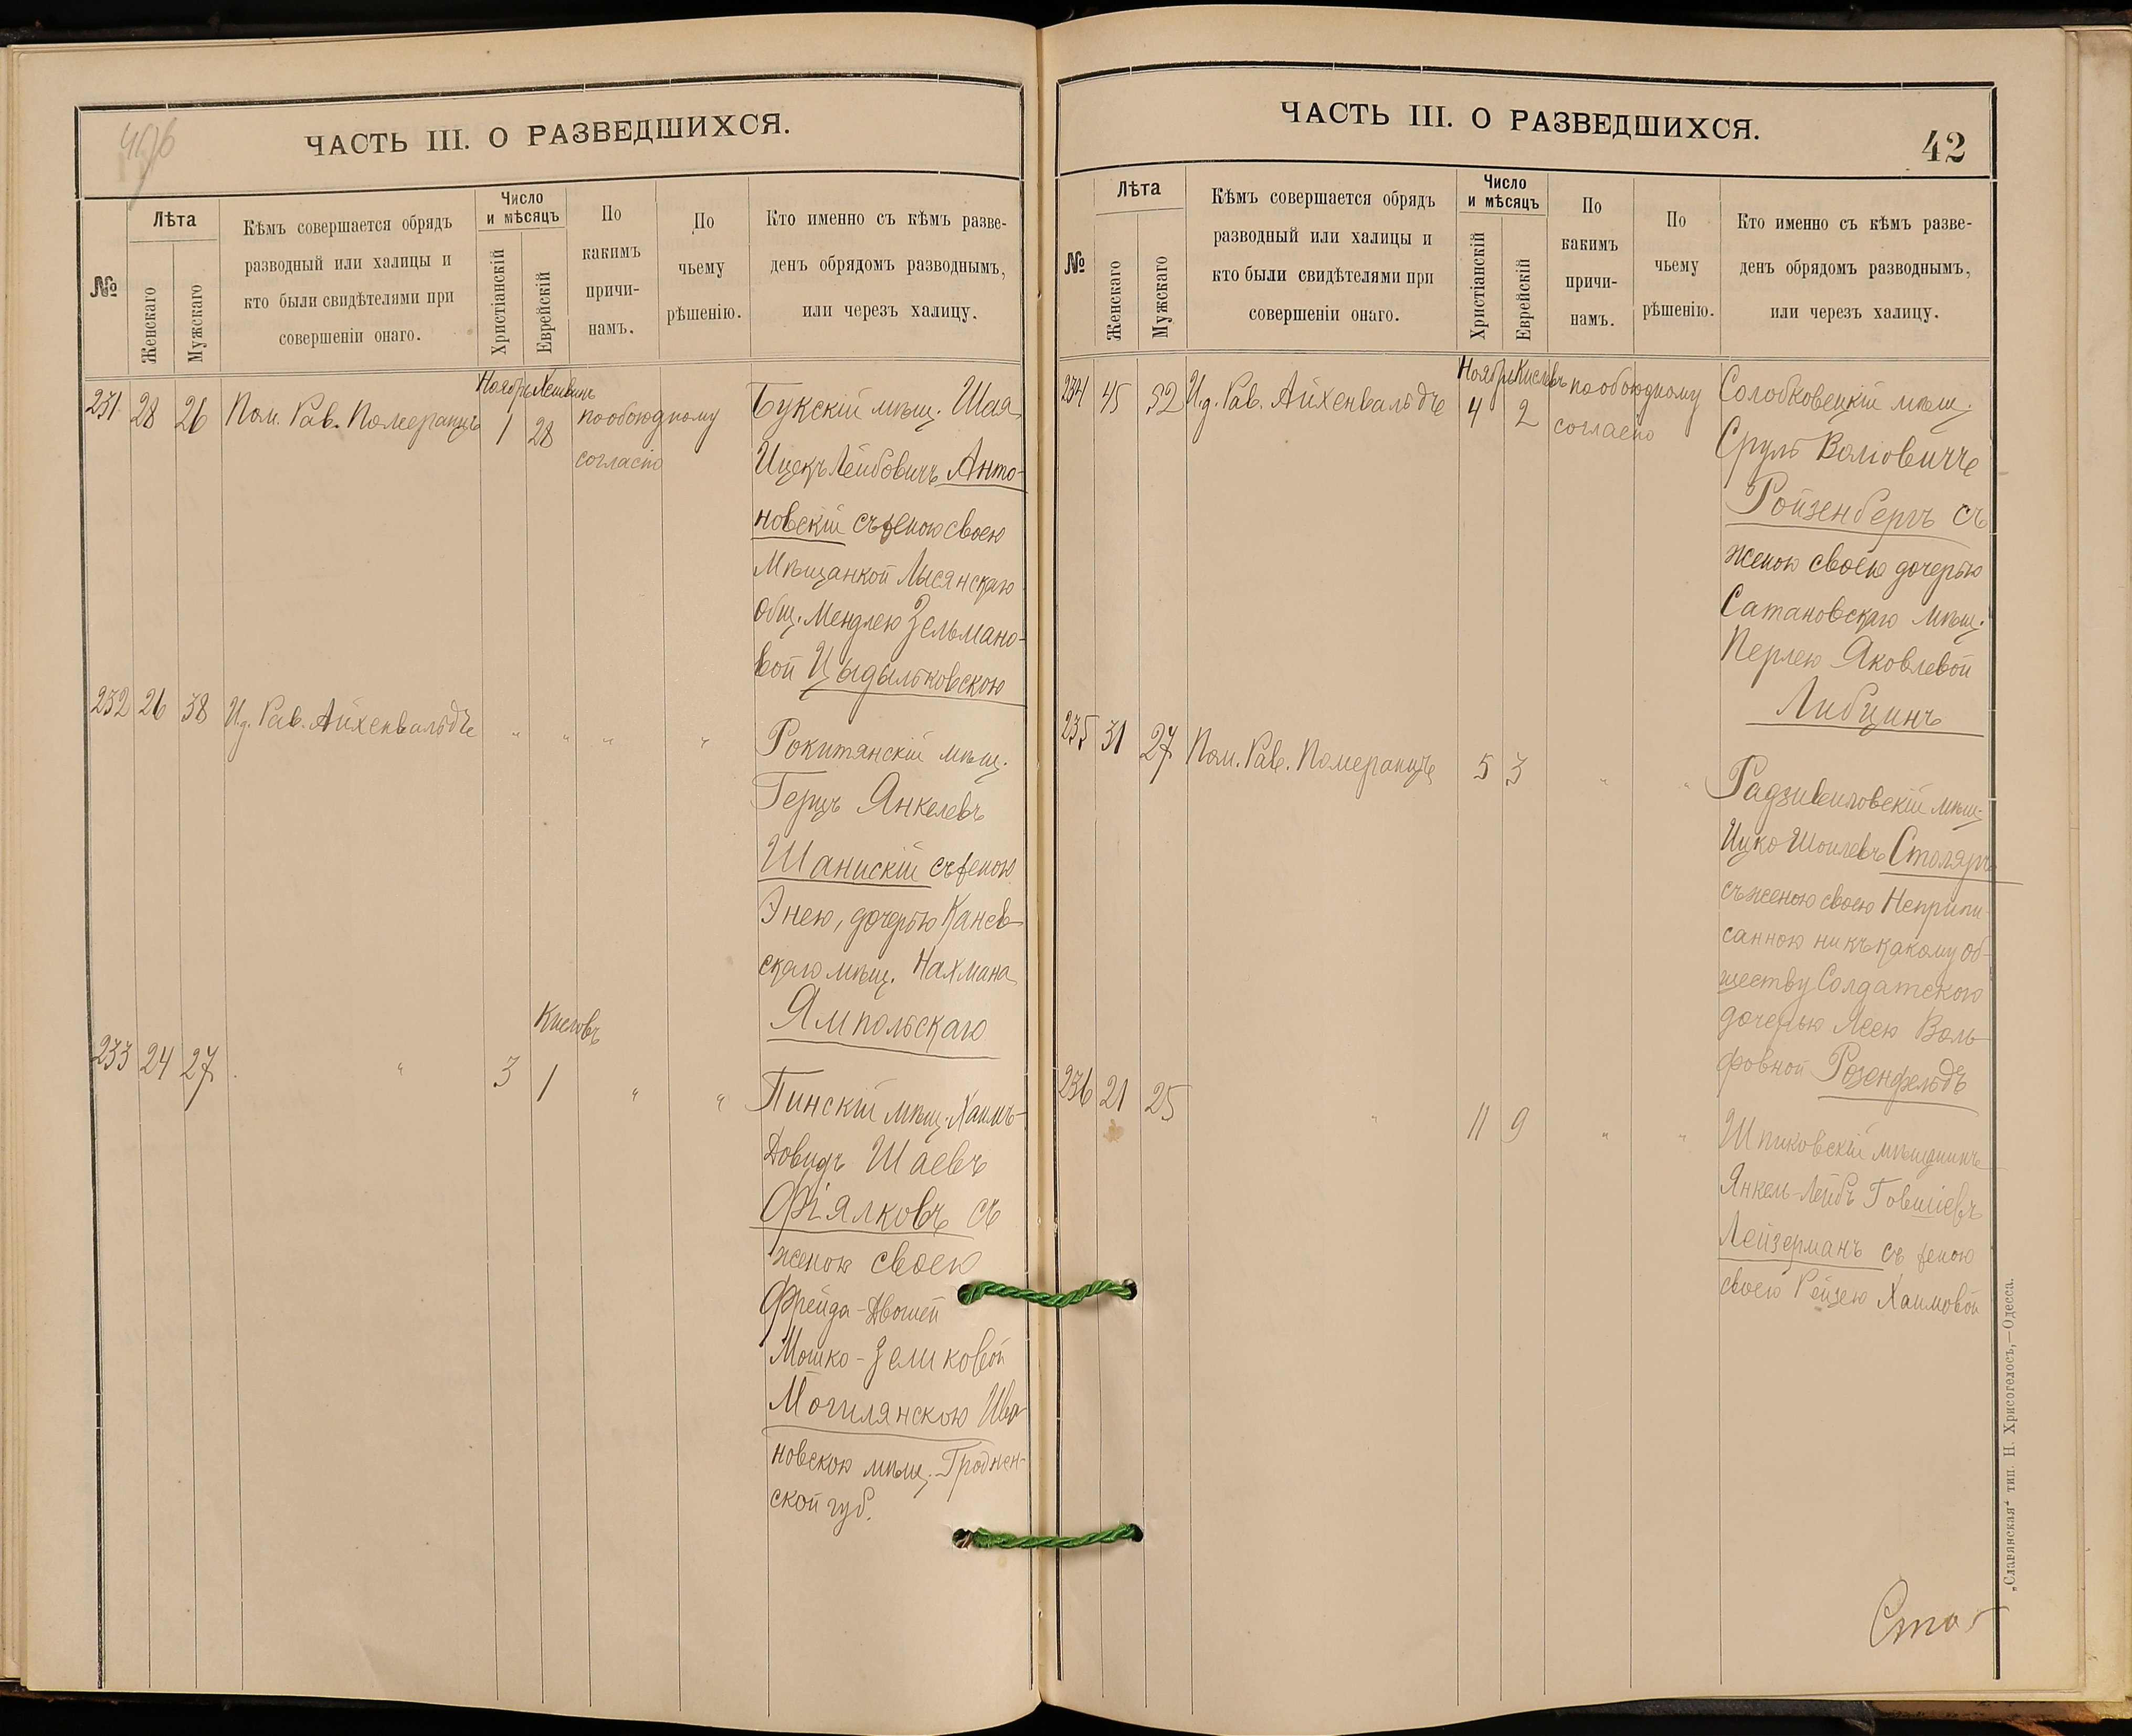 ЧАСТЬ III. О РАЗВЕДШИХСЯ.
№
Лѣта
Женскаго
Мужскаго
Кѣмъ совершается обрядъ
разводный или халицы и
кто были свидѣтелями при
совершеніи онаго.
Число
и мѣсяцъ
Христіанскій
Еврейскій
По
какимъ
причи-
намъ.
По
чьему
рѣшенію.
Кто именно съ кѣмъ разве-
денъ обрядомъ разводнымъ,
или черезъ халицу.
231 28 26 Пом. Рав. Померанцъ
Ноябрь Хешвинъ
1 28
по обоюдному
согласію
Букскій мѣщ. Шая
Ицекъ Лейбовичъ Анто-
новскій съ женою своею
Мѣщанкой Лысянскаго
общ. Мендлею Зельмано-
вой Цыдыльковскою
232 26 38 И.д. Рав. Айхенвальдъ " " " "
Рокитянскій мѣщ.
Герцъ Янкелевъ
Шанискій съ женою
Энею, дочерью Канев
скаго мѣщ. Нахмана
Ямпольскаго
Кислевъ
233 24 27 " 3 1 " "
Пинскій мѣщ. Хаимъ-
Довидъ Шаевъ
Фіялковъ съ
женою своею
Фрейда-Двошей
Мошко-Зеликовой
Могилянскою Ива
новскою мѣщ. Гроднен-
ской губ.
ЧАСТЬ III. О РАЗВЕДШИХСЯ.
42
№
Лѣта
Женскаго
Мужскаго
Кѣмъ совершается обрядъ
разводный или халицы и
кто были свидѣтелями при
совершеніи онаго.
Число
и мѣсяцъ
Христіанскій
Еврейскій
По
какимъ
причи-
намъ.
По
чьему
рѣшенію.
Кто именно съ кѣмъ разве-
денъ обрядомъ разводнымъ,
или черезъ халицу.
234 45 32 И.д. Рав. Айхенвальдъ
Ноябрь Кислевъ
4 2
по обоюдному
согласію
Солобковецкій мѣщ.
Сруль Волiовичъ
Ройзенбергъ съ
женою своею дочерью
Сатановскаго мѣщ.
Перлею Яковлевой
Либцинъ
235 31 27 Пом. Рав. Померанцъ 5 3 " "
Радзивиловскій мѣщ.
Ицко Шоилевъ Столяръ
съ женою своею Неприпи
санною ни къ какому об-
ществу Солдатского
дочерью Леею Воль
фовной Розенфельдъ
236 21 25 " 11 9 " "
Шпиковскій мѣщанинъ
Янкель-Лейбъ Говшіевъ
Лейзерманъ съ женою
своею Рейзею Хаимовой
„Славянская" тип. Н. Хрисогелосъ,—Одесса.